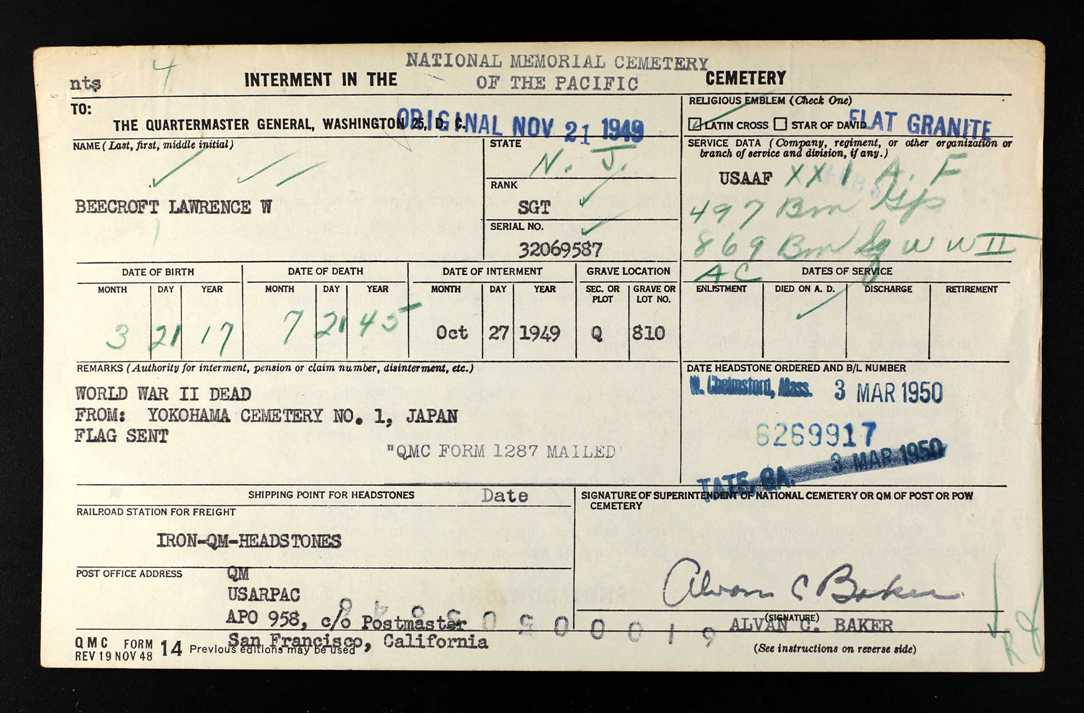 NATIONAL MEMORIAL CEMETERY
nts 4 INTERMENT IN THE OF THE PACIFIC CEMETERY
TO:
THE QUARTERMASTER GENERAL, WASHINGTON 25, D. C.
ORIGINAL NOV 21 1949
RELIGIOUS EMBLEM (Check One)
LATIN CROSS STAR OF DAVID
FLAT GRANITE
NAME (Last, first, middle initial)
BEECROFT LAWRENCE W
STATE
N. J.
RANK
SGT
SERIAL NO.
32069587
SERVICE DATA (Company, regiment, or other organization or
branch of service and division, if any.)
USAAF XXI A. F
497 Bm Gp
869 Bm Sq W W II
AC
DATE OF BIRTH DATE OF DEATH DATE OF INTERMENT GRAVE LOCATION DATES OF SERVICE
MONTH DAY YEAR MONTH DAY YEAR MONTH DAY YEAR SEC. OR PLOT GRAVE OR LOT NO. ENLISTMENT DIED ON A. D. DISCHARGE RETIREMENT
3 21 17 7 21 45 Oct 27 1949 Q 810
REMARKS (Authority for interment, pension or claim number, disinterment, etc.)
WORLD WAR II DEAD
FROM: YOKOHAMA CEMETERY NO. 1, JAPAN
FLAG SENT
"QMC FORM 1287 MAILED
DATE HEADSTONE ORDERED AND B/L NUMBER
W. Chelmsford, Mass. 3 MAR 1950
6269917
TATE, GA. 3 MAR 1950
SHIPPING POINT FOR HEADSTONES Date
RAILROAD STATION FOR FREIGHT
IRON-QM-HEADSTONES
POST OFFICE ADDRESS
QM
USARPAC
APO 958, c/o Postmaster
San Francisco, California
SIGNATURE OF SUPERINTENDENT OF NATIONAL CEMETERY OR QM OF POST OR POW
CEMETERY
Alvan C Baker
(SIGNATURE)
ALVAN C. BAKER
(See instructions on reverse side)
QMC FORM 14 Previous editions may be used
REV 19 NOV 48